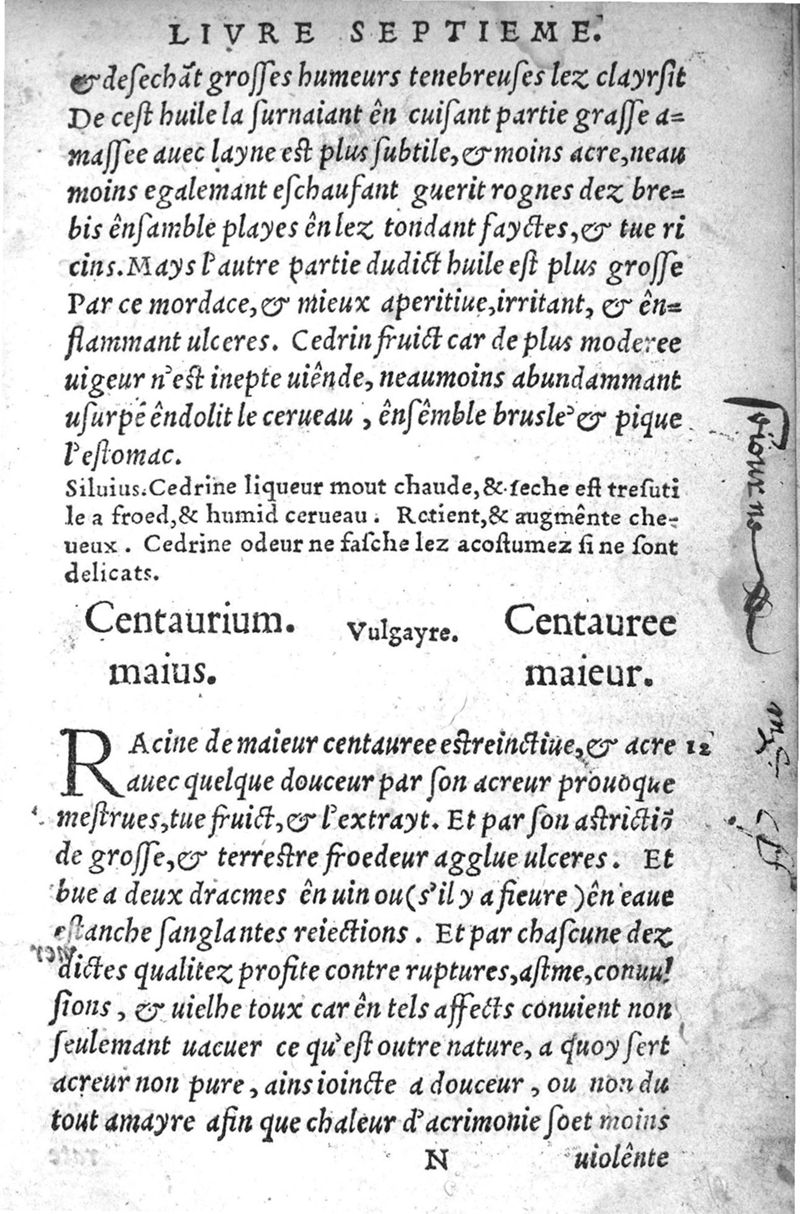 LIVRE SEPTIEME.
& desechāt grosses humeurs tenebreuses lez clayrsit
De cest huile la surnaiant ên cuisant partie grasse a=
massee avec layne est plus subtile, & moins acre, neau
moins egalemant eschaufant guerit rognes dez bre=
bis ênsamble playes ên lez tondant fayctes, & tue ri
cins. Mays l'autre partie dudict huile est plus grosse
Par ce mordace, & mieux aperitiue, irritant, & ên=
flammant ulceres. Cedrin fruict car de plus moderee
uigeur n'est inepte uiênde, neaumoins abundammant
usurpé êndolit le cerueau, ênsêmble brusle & pique
l'estomac.
Siluius. Cedrine liqueur mout chaude, & seche est tresuti
le a froed, & humid cerueau. Retient, & augmênte che-
ueux. Cedrine odeur ne fasche lez acostumez si ne sont
delicats.
Centaurium. Vulgayre. Centauree
maius. maieur.
RAcine de maieur centauree estreinctiue, & acre 12
auec quelque douceur par son acreur prouoque
mestrues, tue fruict, & l'extrayt. Et par son astrictiō
de grosse, & terrestre froedeur agglue ulceres. Et
bue a deux dracmes ên uin ou (s'il y a fieure) ên eaue
estanche sanglantes reiections. Et par chascune dez
dictes qualitez profite contre ruptures, astme, conuul
sions, & uielhe toux car ên tels affects conuient non
seulemant uacuer ce qu'est outre nature, a quoy sert
acreur non pure, ains ioincte a douceur, ou non du
tout amayre afin que chaleur d'acrimonie soet moins
N uiolênte